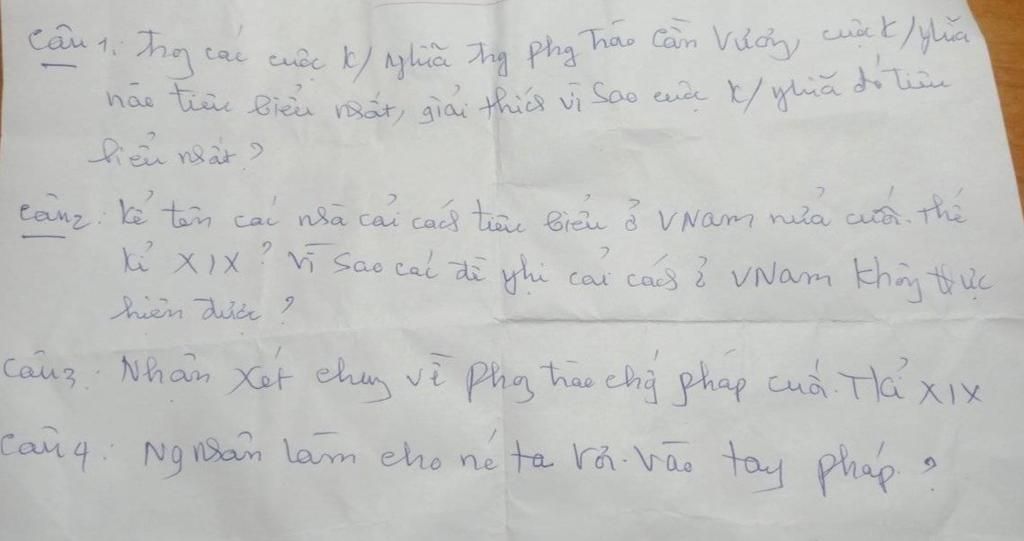 Câu 1: Trg các cuộc k/nghĩa trg phg trào Cần Vương, cuộc k/nghĩa
nào tiêu biểu nhất, giải thích vì sao cuộc k/nghĩa đó tiêu
biểu nhất?
Câu 2: Kể tên các nhà cải cách tiêu biểu ở VNam nửa cuối thế
kỉ XIX? Vì sao các đề nghị cải cách ở VNam không thực
hiện được?
Câu 3: Nhận xét chung về phg trào chg pháp cuối Tkỉ XIX
Câu 4: Ng nhân làm cho nc ta rơi vào tay pháp?